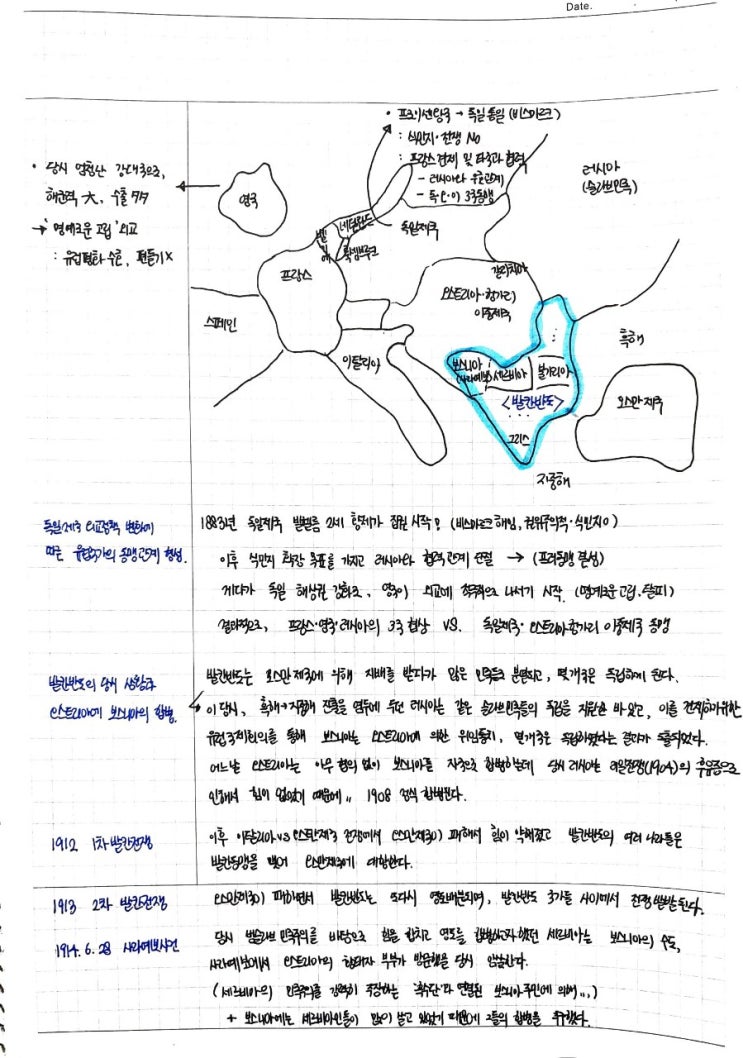 Date.
• 프로이센왕국 → 독일 통일 (비스마르크)
: 식민지·전쟁 No
: 프랑스 견제 및 타국과 협력
- 러시아와 우호관계
- 독·오·이 3국동맹
• 당시 엄청난 강대국으로,
해군력 大, 수출 多多
→ '명예로운 고립' 외교
: 유럽평화 수호, 편들기 X
영국
러시아
(슬라브민족)
네덜란드
벨기에
룩셈부르크
독일제국
프랑스
갈리치아
오스트리아·헝가리
이중제국
스페인
이탈리아
흑해
보스니아
(사라예보)
세르비아
불가리아
<발칸반도>
그리스
오스만 제국
지중해
독일제국 외교정책 변화에
따른 유럽국가의 동맹관계 형성.
1883년 독일제국 빌헬름 2세 황제가 집권 시작! (비스마르크 해임, 권위주의적·식민지 O)
이후 식민지 확장 목표를 가지고 러시아와 협력관계 단절 → (프러동맹 결성)
게다가 독일 해상권 강화로, 영국이 외교에 적극적으로 나서기 시작 (명예로운 고립.탈피)
결과적으로, 프랑스·영국·러시아의 3국 협상 VS. 독일제국·오스트리아헝가리 이중제국 동맹
발칸반도의 당시 상황과
오스트리아에 보스니아의 합병.
발칸반도는 오스만 제국에 의해 지배를 받다가 많은 민족들로 분열되고, 몇개국은 독립하게 된다.
이 당시, 흑해→지중해 진출을 염두에 두던 러시아는 같은 슬라브민족들의 독립을 지원한 바 있고, 이를 견제하기위한
유럽국제회의를 통해 보스니아는 오스트리아에 의한 위임통치, 몇개국은 독립하였다는 결과가 도출되었다.
어느날 오스트리아는 아무 협의 없이 보스니아를 자국으로 합병하는데 당시 러시아는 러일전쟁(1904)의 후유증으로
인해서 힘이 없었기 때문에.. 1908 정식 합병한다.
1912 1차 발칸전쟁
이후 이탈리아 vs 오스만제국 전쟁에서 오스만제국이 패해서 힘이 약해졌고 발칸반도의 여러 나라들은
발칸동맹을 맺어 오스만제국에 대항한다.
1913 2차 발칸전쟁
오스만제국이 패하면서 발칸반도는 또다시 영토배분되며, 발칸반도 국가들 사이에서 전쟁 발발된다.
1914. 6. 28 사라예보사건
당시 범슬라브 민족주의를 바탕으로 힘을 합치고 영토를 합병하고자 했던 세르비아는 보스니아의 수도,
사라예보에서 오스트리아의 황태자 부부가 방문했을 당시 암살한다.
(세르비아의 민족주의를 강력히 주장하는 '흑수단'과 연결된 보스니아 주민에 의해...)
+ 보스니아에는 세르비아인들이 많이 살고 있었기 때문에 그들의 합병을 추구했다.